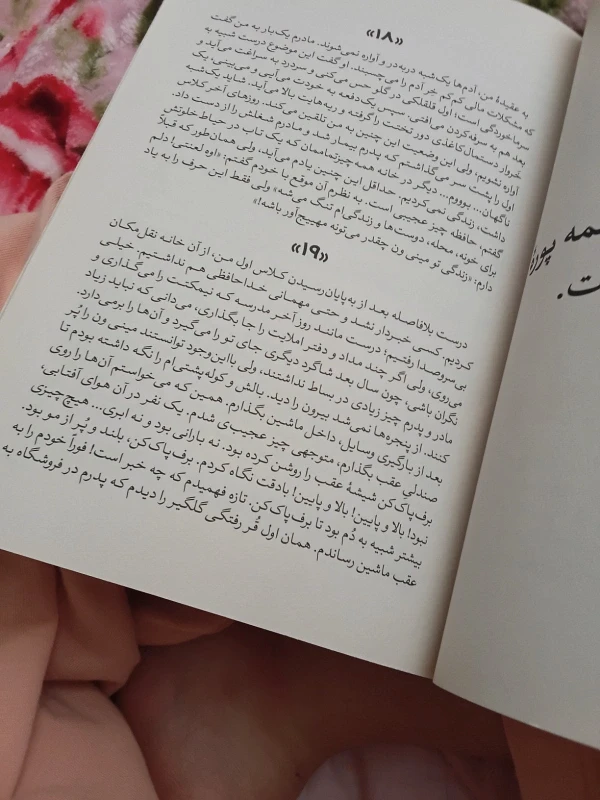 «۱۸»
به عقیدهٔ من، آدم‌ها یک‌شبه دربه‌در و آواره نمی‌شوند. مادرم یک‌بار به من گفت
که مشکلات مالی کم‌کم خِر آدم را می‌چسبند. او گفت این موضوع درست شبیه به
سرماخوردگی است؛ اول قلقلکی در گلو حس می‌کنی و سردرد به سراغت می‌آید و
بعد هم به سرفه کردن می‌افتی. سپس یک‌دفعه به خودت می‌آیی و می‌بینی، یک
خروار دستمال کاغذی دور تختت را گرفته و ریه‌هایت بالا می‌آید. شاید یک‌شبه
آواره نشویم، ولی این وضعیت این چنین به من تلقین می‌کند. روزهای آخر کلاس
اول را پشت سر می‌گذاشتم که پدرم بیمار شد و مادرم شغلش را از دست داد.
ناگهان... بوووم... دیگر در خانه همه‌چیزتمام‌مان که یک تاب در حیاط خلوتش
داشت، زندگی نمی‌کردیم. حداقل این چنین یادم می‌آید، ولی همان‌طور که قبلاً
گفتم، حافظه چیز عجیبی است. به نظرم آن موقع با خودم گفتم: «اوه لعنتی! دلم
برای خونه، محله، دوست‌ها و زندگی‌ام تنگ می‌شه» ولی فقط این حرف را به یاد
دارم: «زندگی تو مینی ون چقدر می‌تونه مهییج‌آور باشه!»
«۱۹»
درست بلافاصله بعد از به‌پایان‌رسیدن کلاس اول من، از آن خانه نقل‌مکان
کردیم. کسی خبردار نشد و حتی مهمانی خداحافظی هم نداشتیم. خیلی
بی‌سروصدا رفتیم؛ درست مانند روز آخر مدرسه که نیمکتت را می‌گذاری و
می‌روی، ولی اگر چند مداد و دفتر املایت را جا بگذاری، می‌دانی که نباید زیاد
نگران باشی، چون سال بعد شاگرد دیگری جای تو را می‌گیرد و آن‌ها را برمی‌دارد.
مادر و پدرم چیز زیادی در بساط نداشتند، ولی بااین‌وجود توانستند مینی ون را پُر
کنند. از پنجره‌ها نمی‌شد بیرون را دید. بالش و کوله‌پشتی‌ام را نگه داشته بودم تا
بعد از بارگیری وسایل، داخل ماشین بگذارم. همین که می‌خواستم آن‌ها را روی
صندلی عقب بگذارم، متوجهی چیز عجیبی شدم. یک نفر در آن هوای آفتابی،
برف‌پاک‌کن شیشهٔ عقب را روشن کرده بود. نه بارانی بود و نه ابری... هیچ چیزی
نبود! بالا و پایین! بالا و پایین! بادقت نگاه کردم. برف‌پاک‌کن، بلند و پُر از مو بود.
بیشتر شبیه به دُم بود تا برف‌پاک‌کن. تازه فهمیدم که چه خبر است! فوراً خودم را به
عقب ماشین رساندم. همان اول قُر رفتگی گلگیر را دیدم که پدرم در فروشگاه به